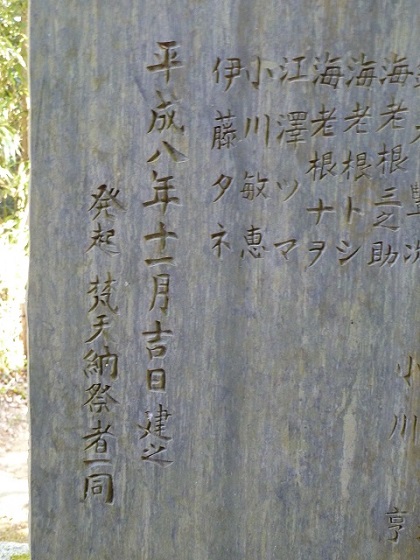 海老根三之助
海老根トシ
海老根ナヲ
江澤ツマ
小川敏恵
伊藤タネ
小川
亨
平成八年十一月吉日 建之
発起 梵天納祭者一同